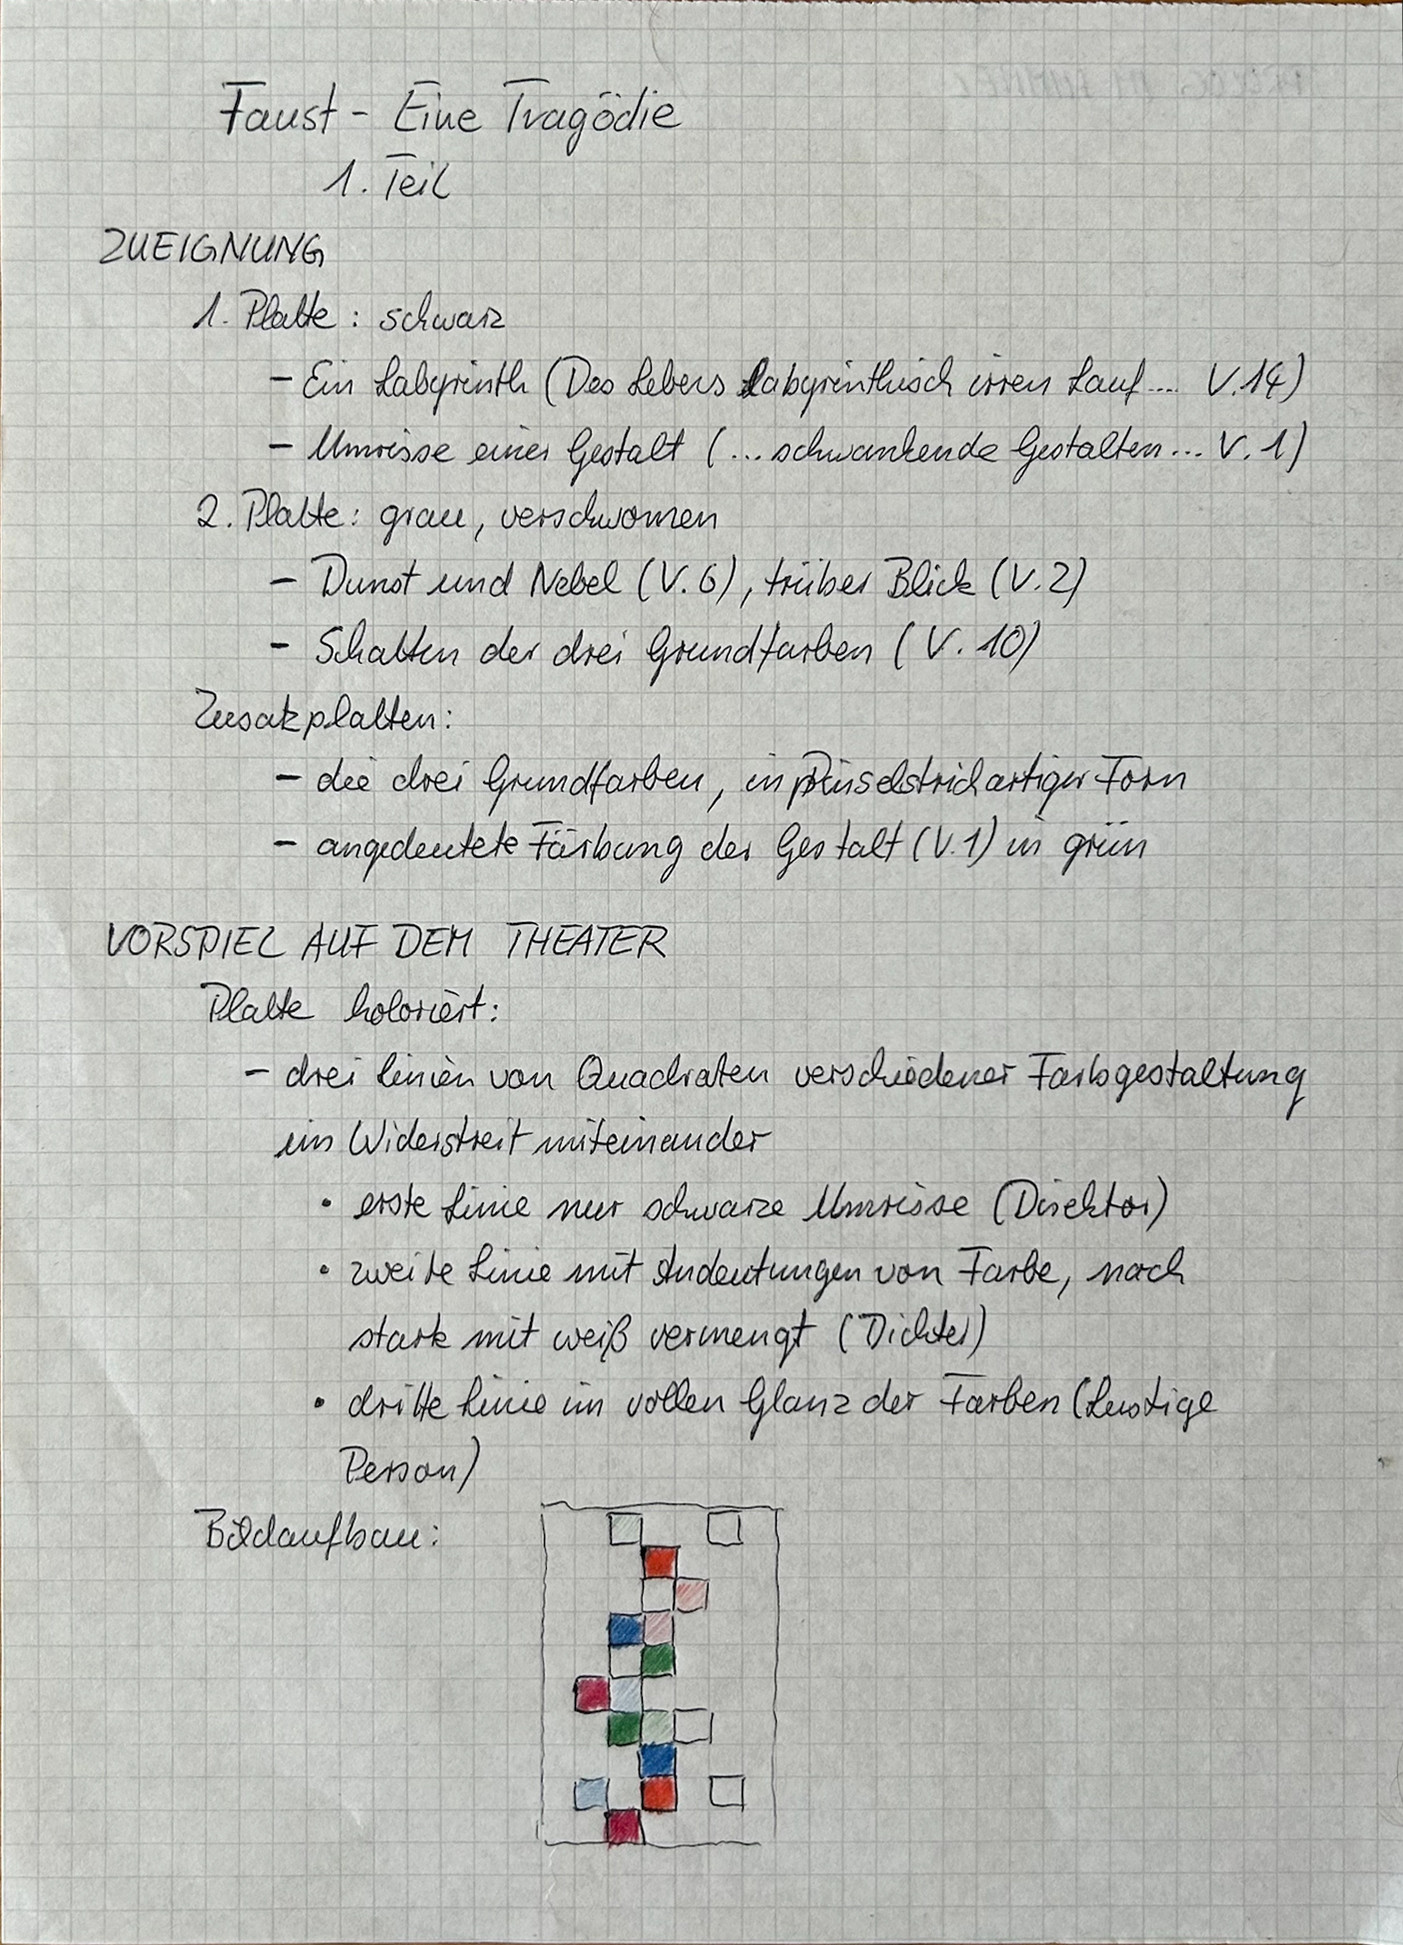 Faust - Eine Tragödie
1. Teil
ZUEIGNUNG
1. Platte: schwarz
- Ein Labyrinth (Des Lebens labyrinthisch irren Lauf.... V.14)
- Umrisse einer Gestalt (...schwankende Gestalten... V. 1)
2. Platte: grau, verschwomen
- Dunst und Nebel (V. 6), trüber Blick (V. 2)
- Schatten der drei Grundfarben (V. 10)
Zusatzplatten:
- die drei Grundfarben, in pinselstrichartiger Form
- angedeutete Färbung der Gestalt (V.1) in grün
VORSPIEL AUF DEM THEATER
Platte koloriert:
- drei Linien von Quadraten verschiedener Farbgestaltung
im Widerstreit miteinander
• erste Linie nur schwarze Umrisse (Direktor)
• zweite Linie mit Andeutungen von Farbe, noch
stark mit weiß vermengt (Dichter)
• dritte Linie im vollen Glanz der Farben (Lustige
Person)
Bildaufbau: